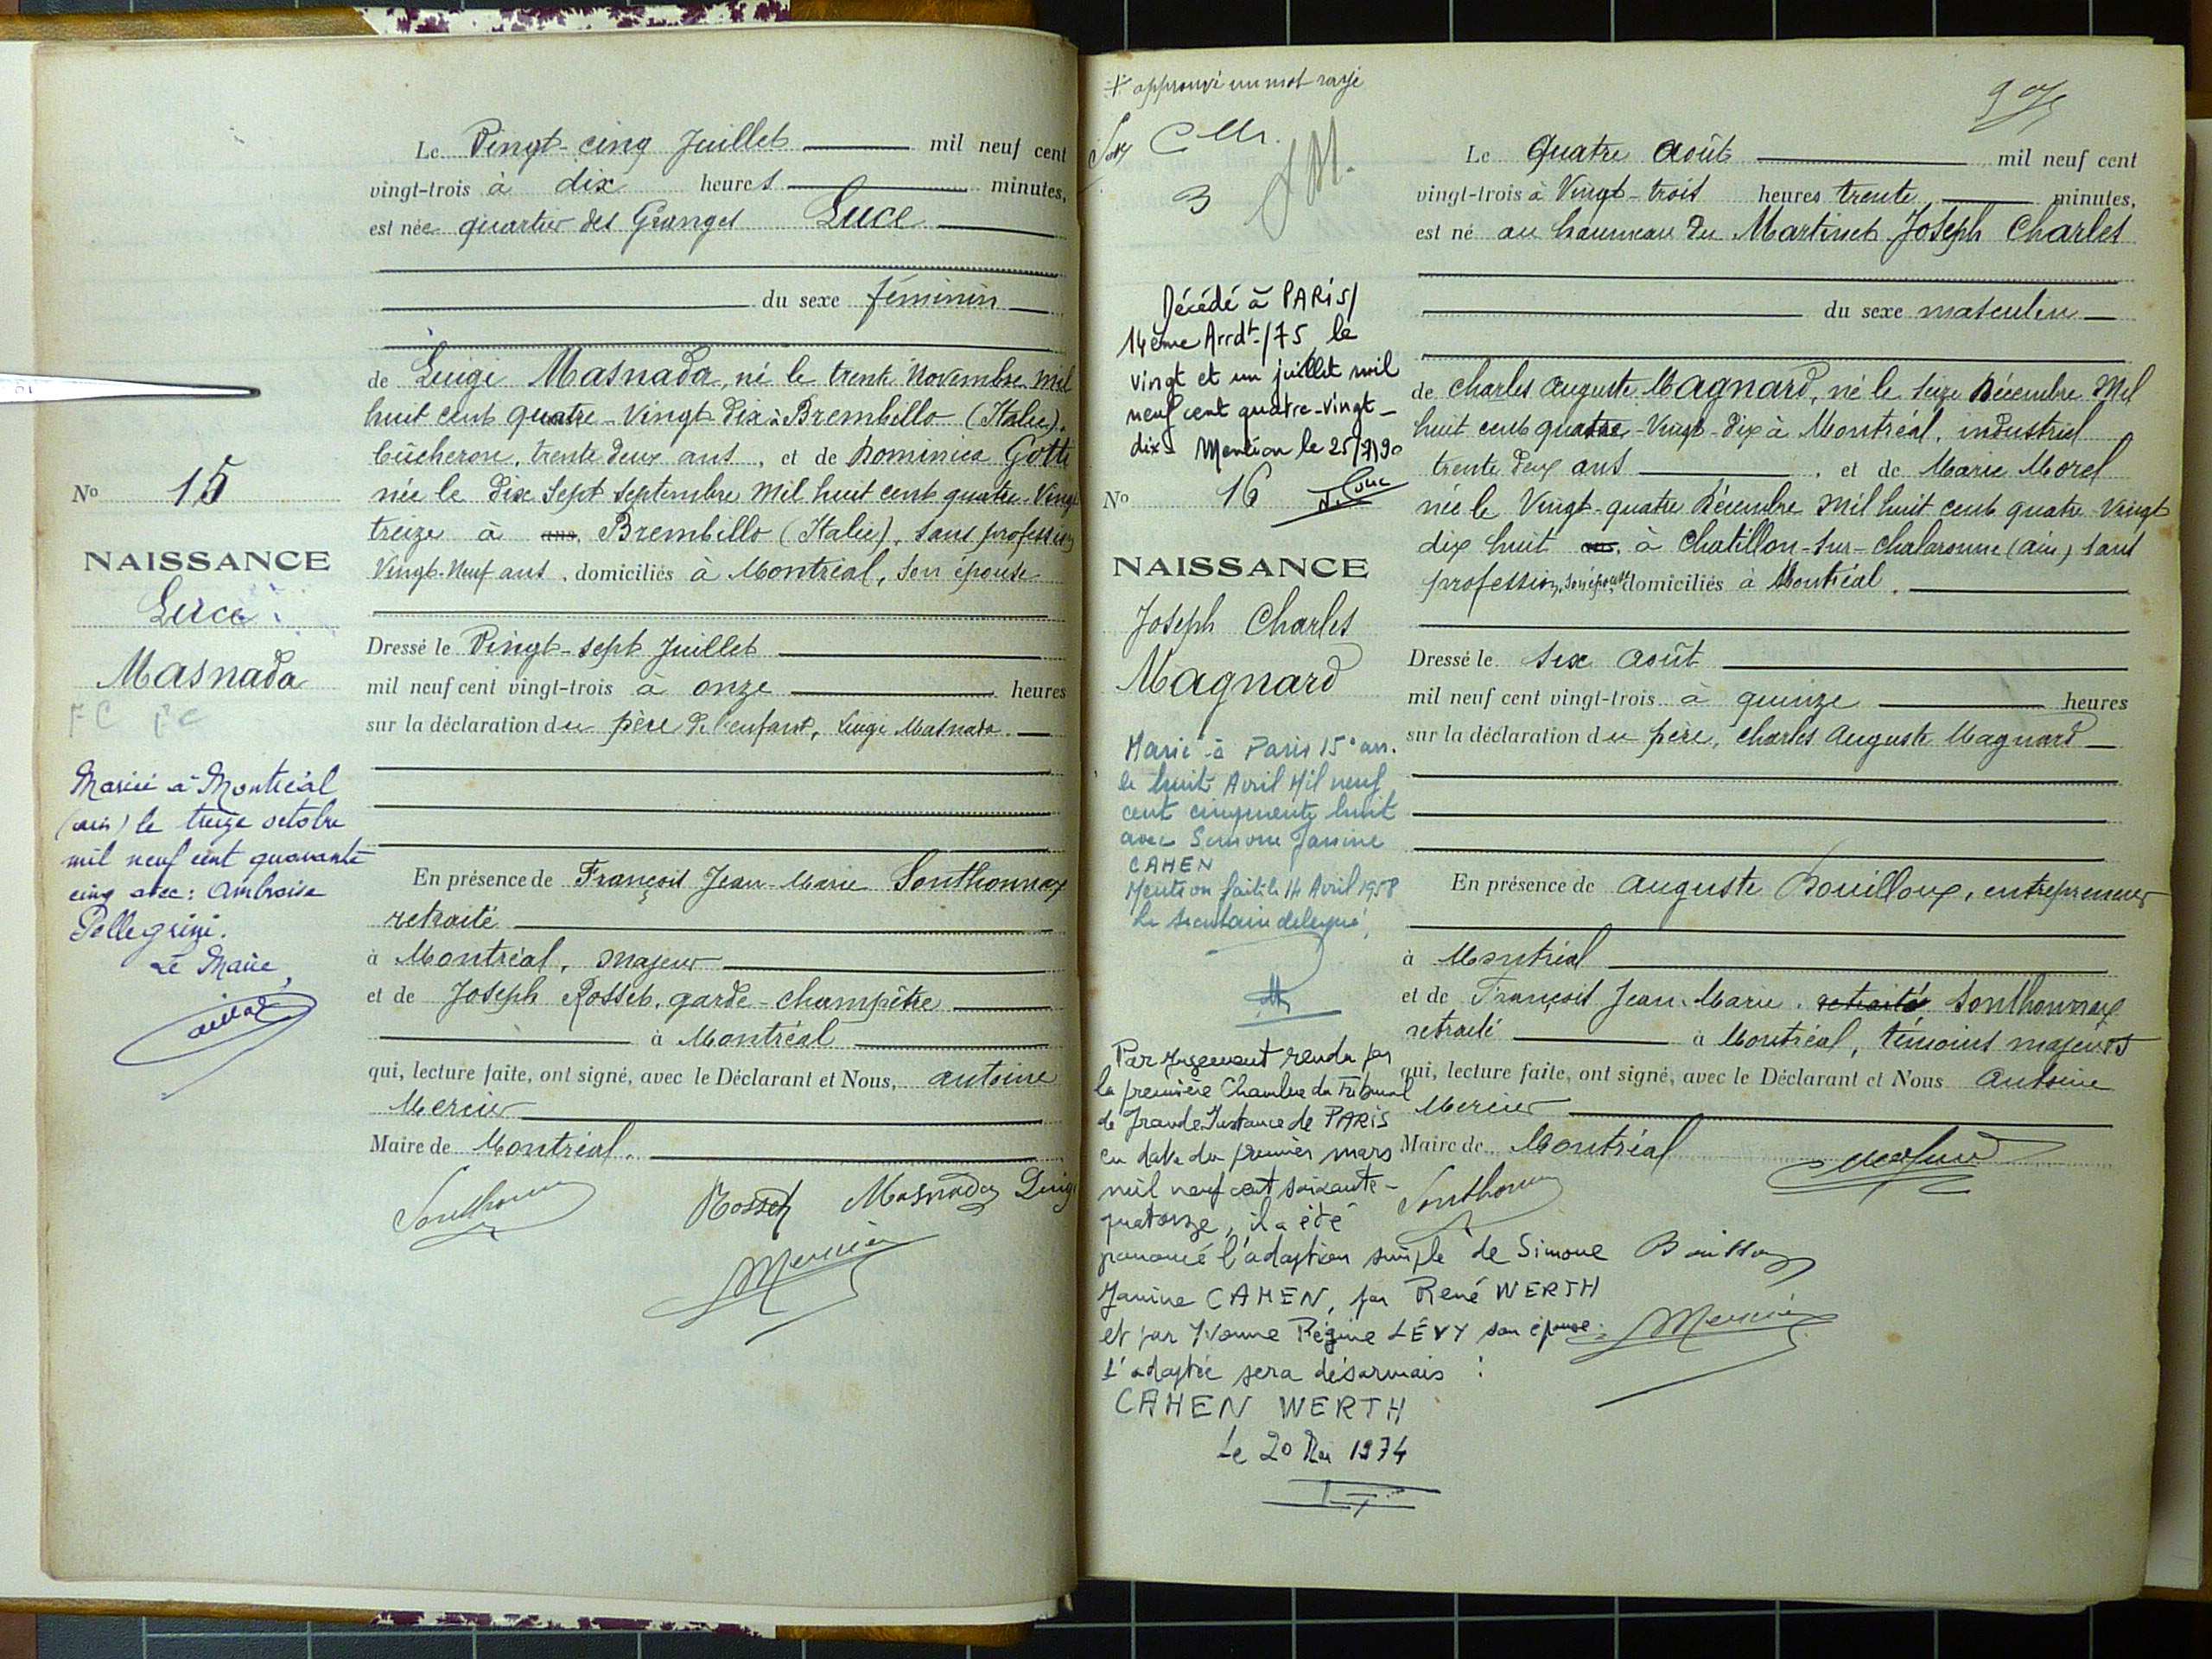 Le Vingt-cinq Juillet mil neuf cent
vingt-trois à dix heures minutes,
est née quartier des Granges Luce
du sexe féminin
de Luigi Masnada, né le trente Novembre mil
huit cent quatre-Vingt dix à Brembillo (Italie).
bûcheron, trente deux ans, et de Dominica Gotti
née le dix sept septembre mil huit cent quatre-Vingt
treize à ans, Brembillo (Italie), sans profession
Vingt-Neuf ans, domiciliés à Montréal, son épouse
Dressé le Vingt-sept Juillet
mil neuf cent vingt-trois à onze heures
sur la déclaration du père de l'enfant, Luigi Masnada.
En présence de François Jean-Marie Sonthonnax
retraité
à Montréal, majeur
et de Joseph Rosset, garde-champêtre
à Montréal
qui, lecture faite, ont signé, avec le Déclarant et Nous, antoine
Mercier
Maire de Montréal.
Sonthonnax Rosset Masnada Luigi
Mercier
No 15
NAISSANCE
Luce
Masnada
FC FC
Mariée à Montréal
(ain) le treize octobre
mil neuf cent quarante
cinq avec: Ambroise
Pellegrini.
Le Maire,
+ approuvé un mot rayé
Le quatre août mil neuf cent
vingt-trois à Vingt-trois heures trente minutes,
est né au hameau du Martinet Joseph Charles
du sexe masculin
de Charles Auguste Magnard, né le seize Décembre Mil
huit cent quatre-Vingt-dix à Montréal, industriel
trente deux ans, et de Marie Morel
née le Vingt-quatre Décembre mil huit cent quatre-Vingt
dix huit ans, à Chatillon-sur-Chalaronne (ain) sans
profession, son épouse, domiciliés à Montréal.
Dressé le six août
mil neuf cent vingt-trois à quinze heures
sur la déclaration du père, Charles Auguste Magnard
En présence de Auguste Bouilloux, entrepreneur
à Montréal
et de François Jean-Marie. retraité Sonthonnax
retraité à Montréal, témoins majeurs
qui, lecture faite, ont signé, avec le Déclarant et Nous Antoine
Mercier
Maire de Montréal
Sonthonnax
Mercier
Décédé à PARIS/
14ème Arrdt-/75 le
vingt et un juillet mil
neuf cent quatre-vingt-
dix. Mention le 25/7/90
No 16
NAISSANCE
Joseph Charles
Magnard
Marié à Paris 15° arr.
le huit Avril Mil neuf
cent cinquante huit
avec Simone Janine
CAHEN
Mention faite le 14 Avril 1958
Le secrétaire délégué,
Par Jugement rendu par
la première Chambre du Tribunal
de Grande Instance de PARIS
en date du premier mars
mil neuf cent soixante-
quatorze, il a été
prononcé l'adoption simple de Simone
Janine CAHEN, par René WERTH
et par Yvonne Régine LÉVY son épouse.
L'adoptée sera désormais :
CAHEN WERTH
Le 20 Mai 1974